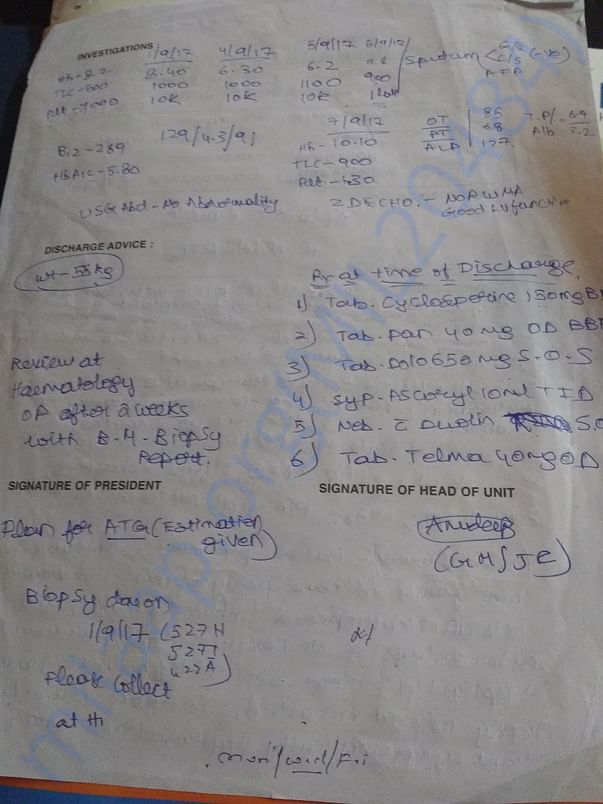 INVESTIGATIONS
1/9/17 4/9/17 5/9/17 6/9/17
Hb-8.2 8.40 6.30 6.2
TLC-800 1000 1000 1100 900
Plt-7000 10K 10K 10K
Sputum C/S (-ve)
AFB
B12-289 129/4.3/91
HbA1C-5.80
7/9/17
Hb-10.10
TLC-900
Plt-430
OT 85
PT 68
ALP 127
T.P/-6.9
Alb 3.2
USG Abd-No Abnormality
2DECHO.-NO RWMA
Good LV function
DISCHARGE ADVICE :
wt-55kg
Rx at time of Discharge
1) Tab. Cyclosporine 150mg
2) Tab. Pan 40mg OD BBF
3) Tab. Dolo 650mg S.O.S
4) Syp. Ascoryl 10ml TID
5) Neb. Duolin
6) Tab. Telma 40mg OD
Review at
Haematology
OP after 2 weeks
with B.M. Biopsy
Report.
SIGNATURE OF PRESIDENT
SIGNATURE OF HEAD OF UNIT
Plan for ATG (Estimation
given)
Anudeep
Biopsy done on
1/9/17 (527H
527I
422A)
Please Collect
at
Mon/Wed/Fri